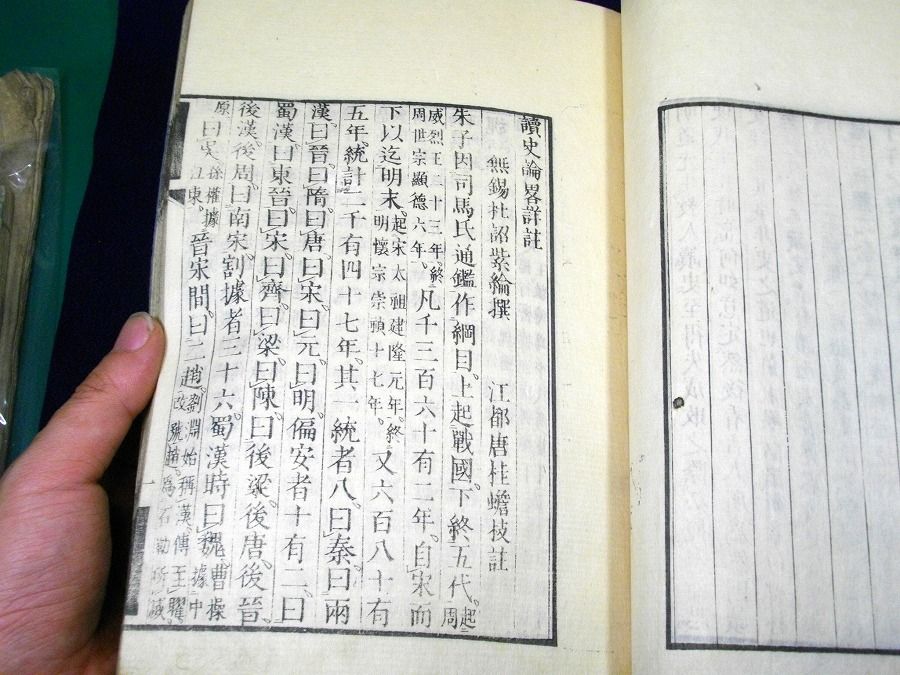 讀史論畧詳註
無錫杜詔紫綸撰 江都唐桂蟾枝註
朱子因司馬氏通鑑作綱目。上起戰國。下終五代。起周
威烈王二十三年。終周世宗顯德六年。凡千三百六十有二年。自宋而
下以迄明末。起宋太祖建隆元年。終明懷宗崇禎十七年。又六百八十有
五年。統計二千有四十七年。其一統者八。曰秦。曰兩
漢。曰晉。曰隋。曰唐。曰宋。曰元。曰明。偏安者十有二。曰
蜀漢。曰東晉。曰宋。曰齊。曰梁。曰陳。曰後梁。後唐。後晉。
後漢。後周。曰南宋。割據者三十六。蜀漢時。曰魏。曹操據中
原。曰吳。孫權據江東。晉宋間。曰二趙。劉淵始稱漢。傳至曜改號趙。為石勒所滅